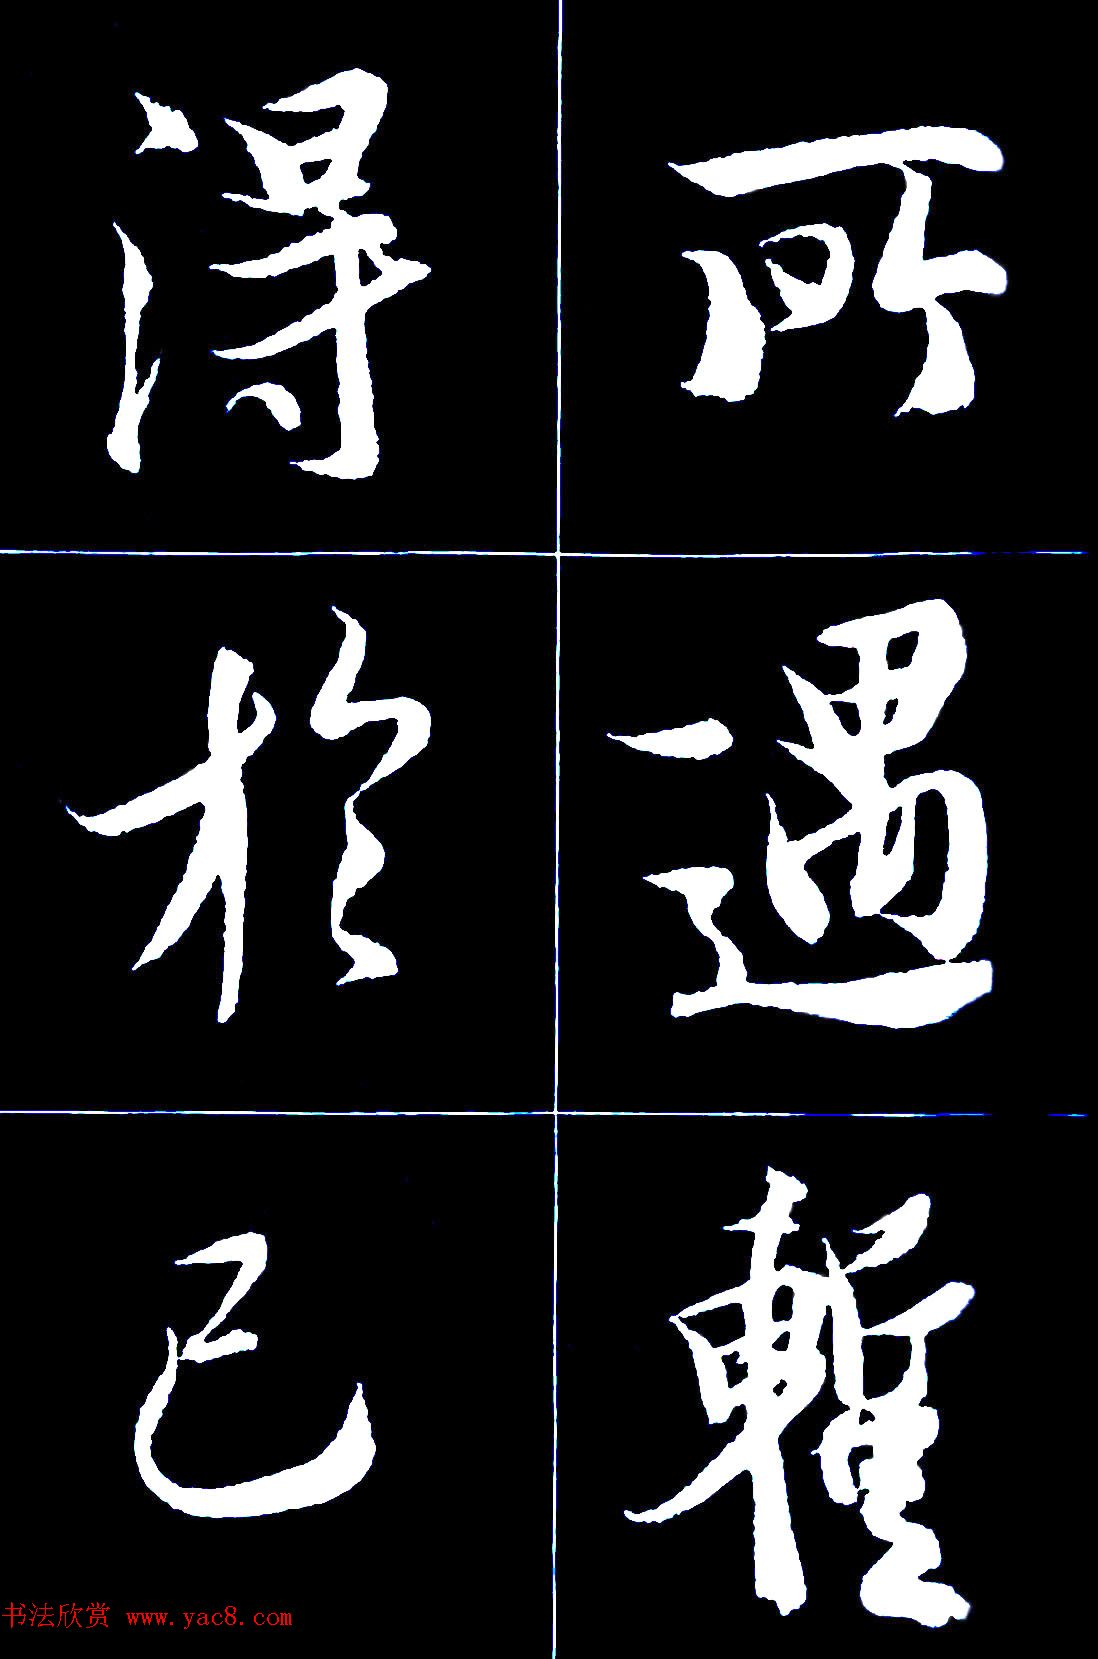 所遇暫
得於己
书法欣赏 www.yac8.com